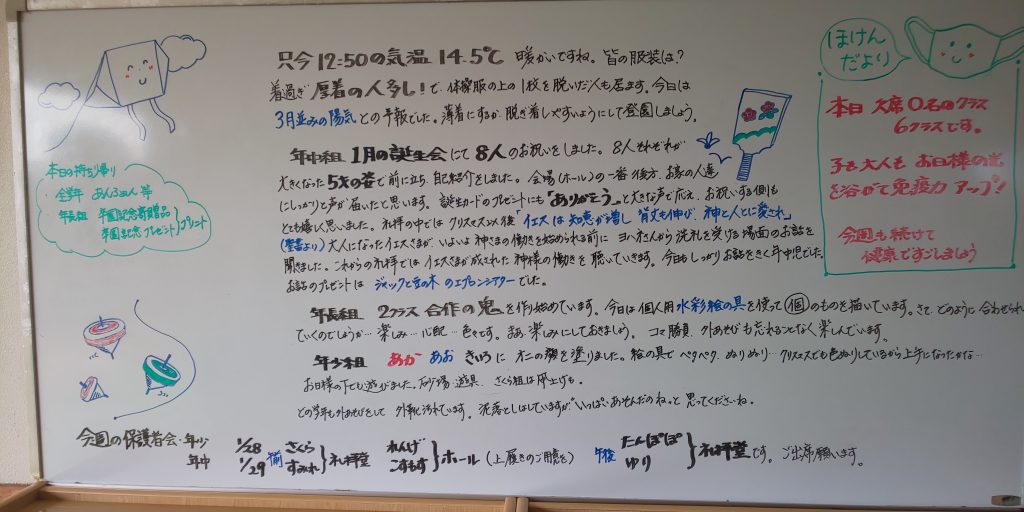 只今12:50の気温 14.5℃ 暖かいですね。皆の服装は?
着過ぎ 厚着の人多し!で、体操服の上の1枚を脱いだ人も居ます。今日は
3月並みの陽気 との予報でした。薄着にするか、脱ぎ着しやすいようにして登園しましょう。
年中組 1月の誕生会にて8人のお祝いをしました。8人それぞれが
大きくなった5才の姿で前に立ち、自己紹介をしました。会場(ホール)の一番後方、お家の人達
にしっかりと声が届いたと思います。誕生カードのプレゼントにも"ありがとう"と大きな声で応え、お祝いする側も
とても嬉しく思いました。礼拝の中では クリスマス以後「イエスは知恵が増し 背丈も伸び、神と人とに愛され」
(聖書より) 大人になったイエスさまが、いよいよ神さまの働きを始められる前に ヨハネさんから洗礼を受ける場面のお話を
聞きました。これからの礼拝では イエスさまが成された神様の働きを 聴いていきます。今日もしっかりお話をきく年中児でした。
お話のプレゼントは ジャックと豆の木 のエプロンシアターでした。
年長組 2クラス 合作の鬼 を作り始めています。今日は個人用水彩絵の具を使って個のものを描いています。さて、どのように合わせられ
ていくのでしょうか… 楽しみ…心配…色々です。まあ、楽しみにしておきましょう。コマ勝負、外あそびも忘れることなく楽しんでいます。
年少組 あか あお きいろに オニの顔を塗りました。絵の具で ペタペタ、ぬりぬり… クリスマスでも色ぬりしているから上手になったかな…
お日様の下でも遊びました。砂場、遊具、さくら組は凧上げも。
どの学年も外あそびをして 外靴に汚れています。泥落としはしていますが"いっぱいあそんだのね"と 思ってくださいね。
今週の保護者会・年少 1/28
年中 1/29
午前 さくら
すみれ 礼拝堂
れんげ
こすもす ホール(上履きのご用意を)
午後 たんぽぽ
ゆり 礼拝堂です。ご出席願います。
本日の持ち帰り
全学年 あんふぁん 等
年長組 卒園記念寄贈品
卒園記念プレゼント プリント
ほけん
だより
本日 欠席0名のクラス
6クラスです。
子も大人も お日様の光
を浴びて免疫力アップ!
今週も続けて
健康ですごしましょう